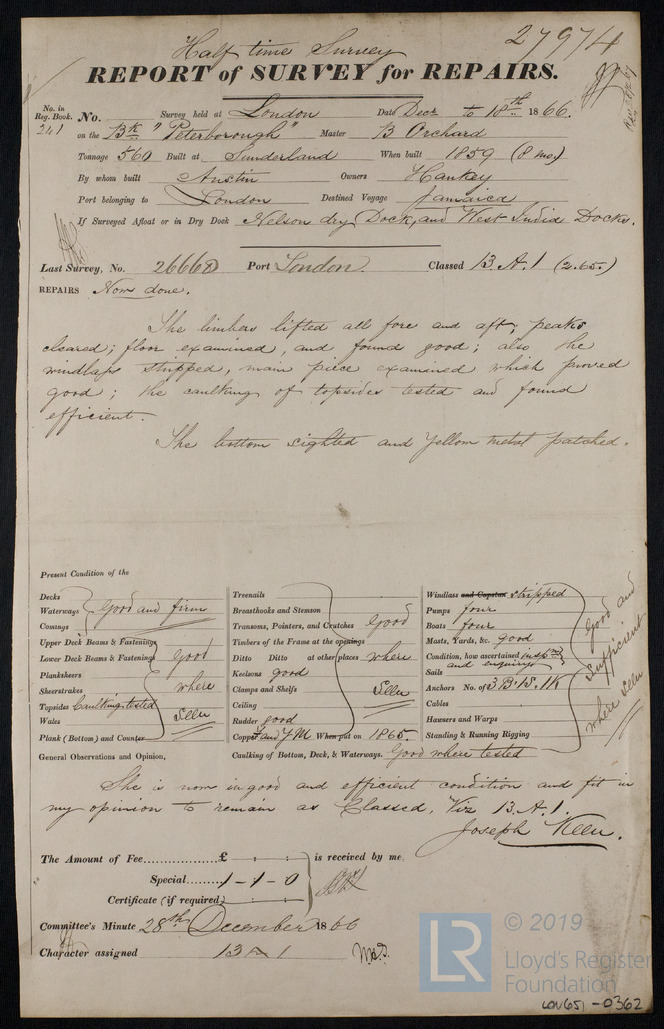 Half time Survey
27974
REPORT of SURVEY for REPAIRS.
No. in
Reg. Book.
241
No. Survey held at London Date Decr to 18th 1866.
on the Bk "Peterborough" Master B Orchard
Tonnage 560 Built at Sunderland When built 1859 (8 mo.)
By whom built Austin Owners Hankey
Port belonging to London Destined Voyage Jamaica
If Surveyed Afloat or in Dry Dock Nelson dry Dock, and West India Docks.
Last Survey, No. 26668 Port London. Classed 13.A.1 (2.65.)
REPAIRS Now done.
The limbers lifted all fore and aft; peaks
cleared; floor examined, and found good; also the
windlass stripped, main piece examined which proved
good; the caulking of topsides tested and found
efficient.
The bottom sighted and Yellow metal patched.
Present Condition of the
Decks
Waterways
Comings
Good and firm
Upper Deck Beams & Fastenings
Lower Deck Beams & Fastenings
Planksheers
Sheerstrakes
Topsides Caulking tested
Wales
Plank (Bottom) and Counter
Good
where
Seen
Treenails
Breasthooks and Stemson
Transoms, Pointers, and Crutches
Timbers of the Frame at the openings
Ditto Ditto at other places
Keelsons good
Clamps and Shelfs
Ceiling
Rudder good
Good
where
Seen
Copper and YM When put on 1865.
Windlass and Capstan stripped
Pumps four
Boats four
Masts, Yards, &c. good
Condition, how ascertained inspn
and enquiry
Sails
Anchors No. of 3 B. 1 S. 1 K
Cables
Hawsers and Warps
Standing & Running Rigging
Good and
Sufficient
where seen
General Observations and Opinion,
Caulking of Bottom, Deck, & Waterways. Good where tested
She is now in good and efficient condition and fit in
my opinion to remain as Classed, Viz 13.A.1.
Joseph Keen.
The Amount of Fee £ is received by me,
Special 1-1-0
Certificate (if required)
Committee's Minute 28th December 1866
Character assigned 13 A 1
© 2019
LR
Lloyd's Register
Foundation
LON651-0362